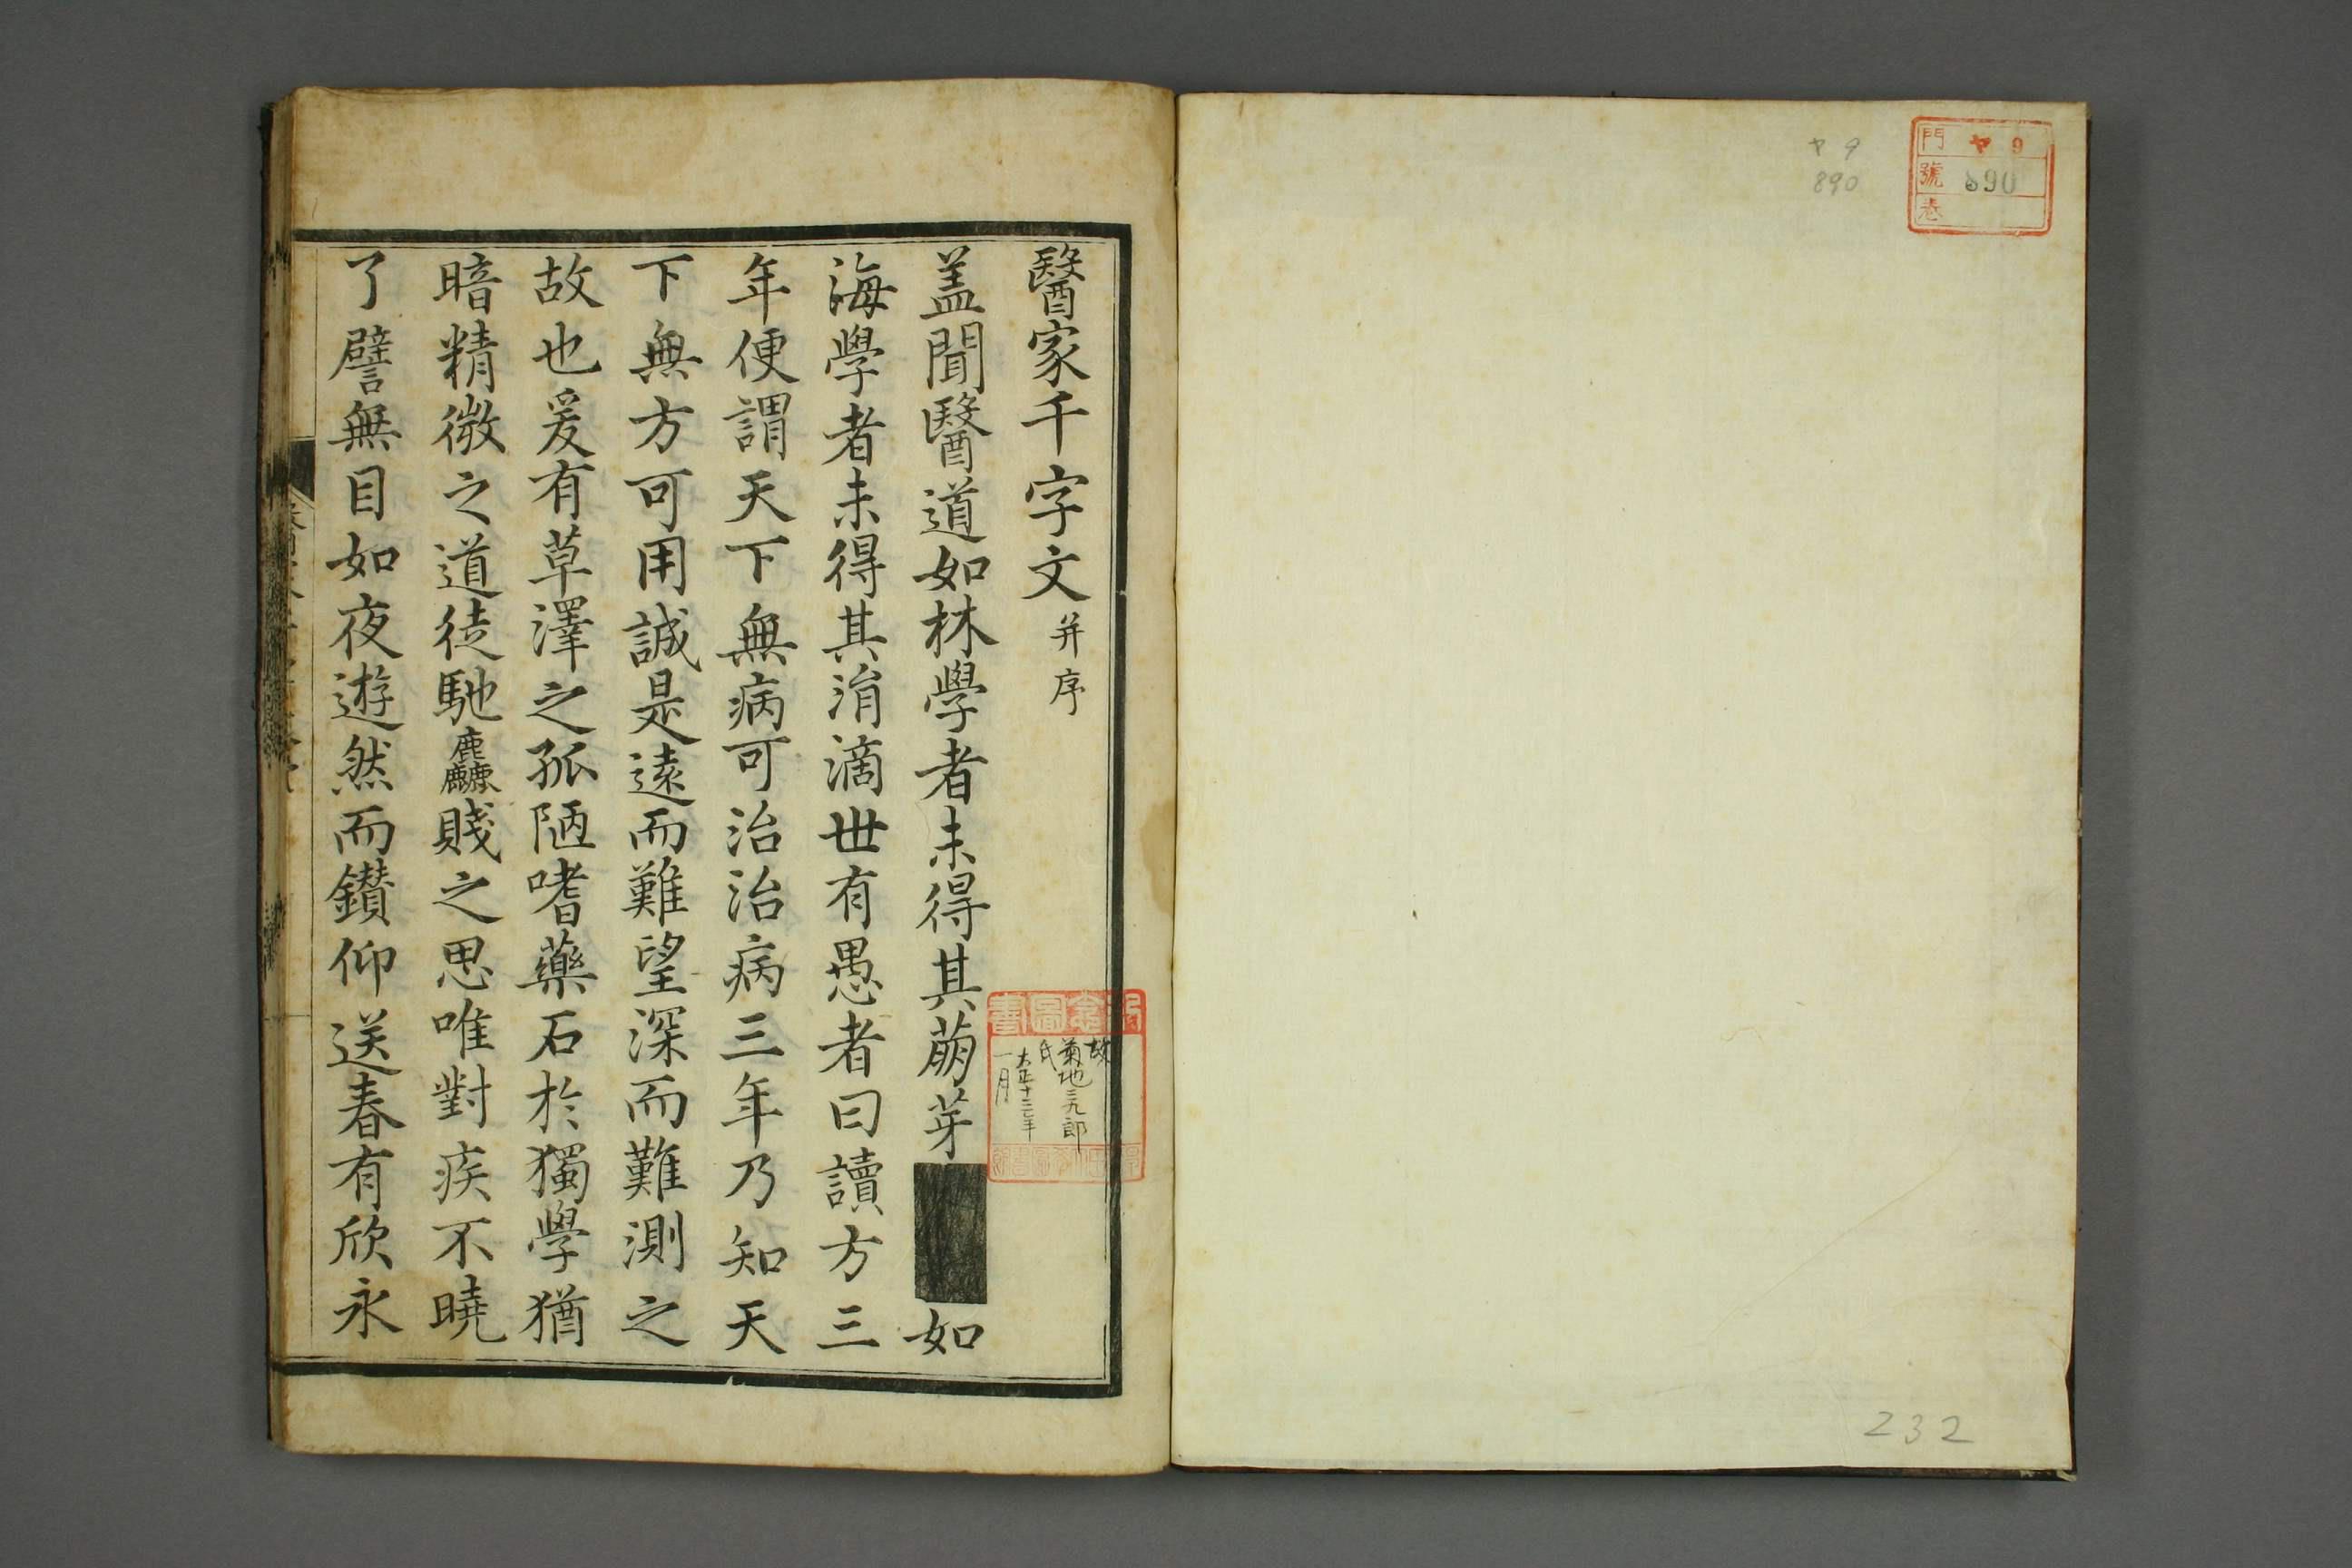 門 ヤ 9
號 890
巻
ヤ 9
890
232
醫家千字文 并序
盖聞醫道如林學者未得其萠芽 如
海學者未得其涓滴世有愚者曰讀方三
年便謂天下無病可治治病三年乃知天
下無方可用誠是遠而難望深而難測之
故也爰有草澤之孤陋嗜藥石於獨學猶
暗精微之道徒馳麤賤之思唯對疾不曉
了譬無目如夜遊然而鑚仰送春有欣永
故
菊地三九郎
氏
大正十三年
一月